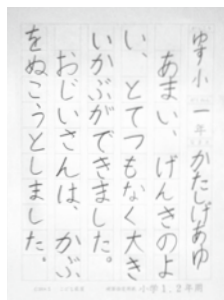 ゆす小一年かたしげあゆ
あまい、げんきのよ
い、とてつもなく大き
いかぶができました。
おじいさんは、かぶ
をぬこうとしました。
小学1.2年用